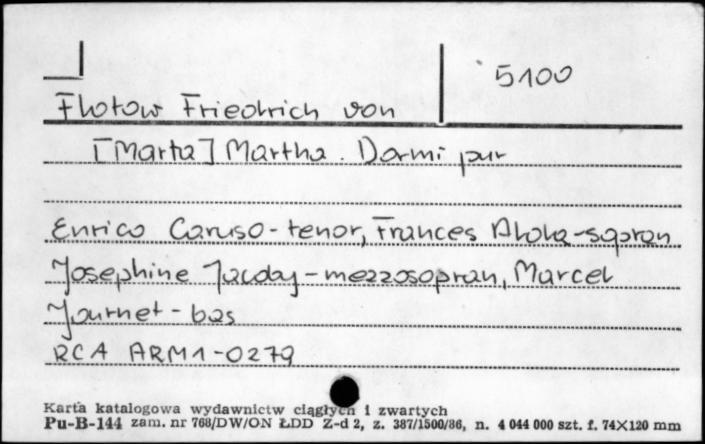 5100
Flotow Friedrich von
[Marta] Martha. Dormi pur
Enrico Caruso-tenor, Frances Alda-sopran
Josephine Jacoby-mezzosopran, Marcel
Journet-bas
RCA ARM1-0279
Karta katalogowa wydawnictw ciągłych i zwartych
Pu-B-144 zam. nr 768/DW/ON ŁDD Z-d 2, z. 387/1500/86, n. 4 044 000 szt. f. 74X120 mm